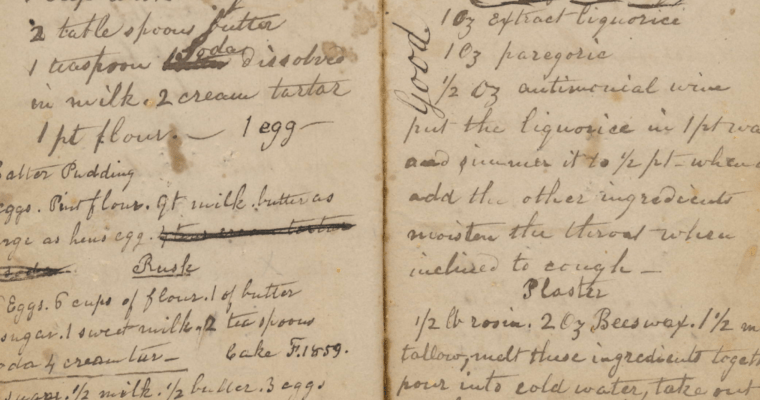 2 table spoons butter
1 teaspoon Soda dissolved
in milk. 2 cream tartar
1 pt flour. — 1 egg —
Batter Pudding
eggs. Pint flour. Qt milk. butter as
large as hens egg.
Rusk
Eggs. 6 cups of flour. 1 of butter
sugar. 1 sweet milk. 2 tea spoons
soda 4 cream tar —
Cake F. 1859.
sugar. 1/2 milk. 1/2 butter. 3 eggs
Good
1 Oz extract liquorice
1 Oz paregoric
1/2 Oz antimonial wine
put the liquorice in 1 pt wa
and simmer it to 1/2 pt - when
add the other ingredients
moisten the throat when
inclined to cough —
Plaster
1/2 lb rosin. 2 Oz Beeswax. 1 1/2 m
tallow, melt these ingredients toget
pour into cold water, take out